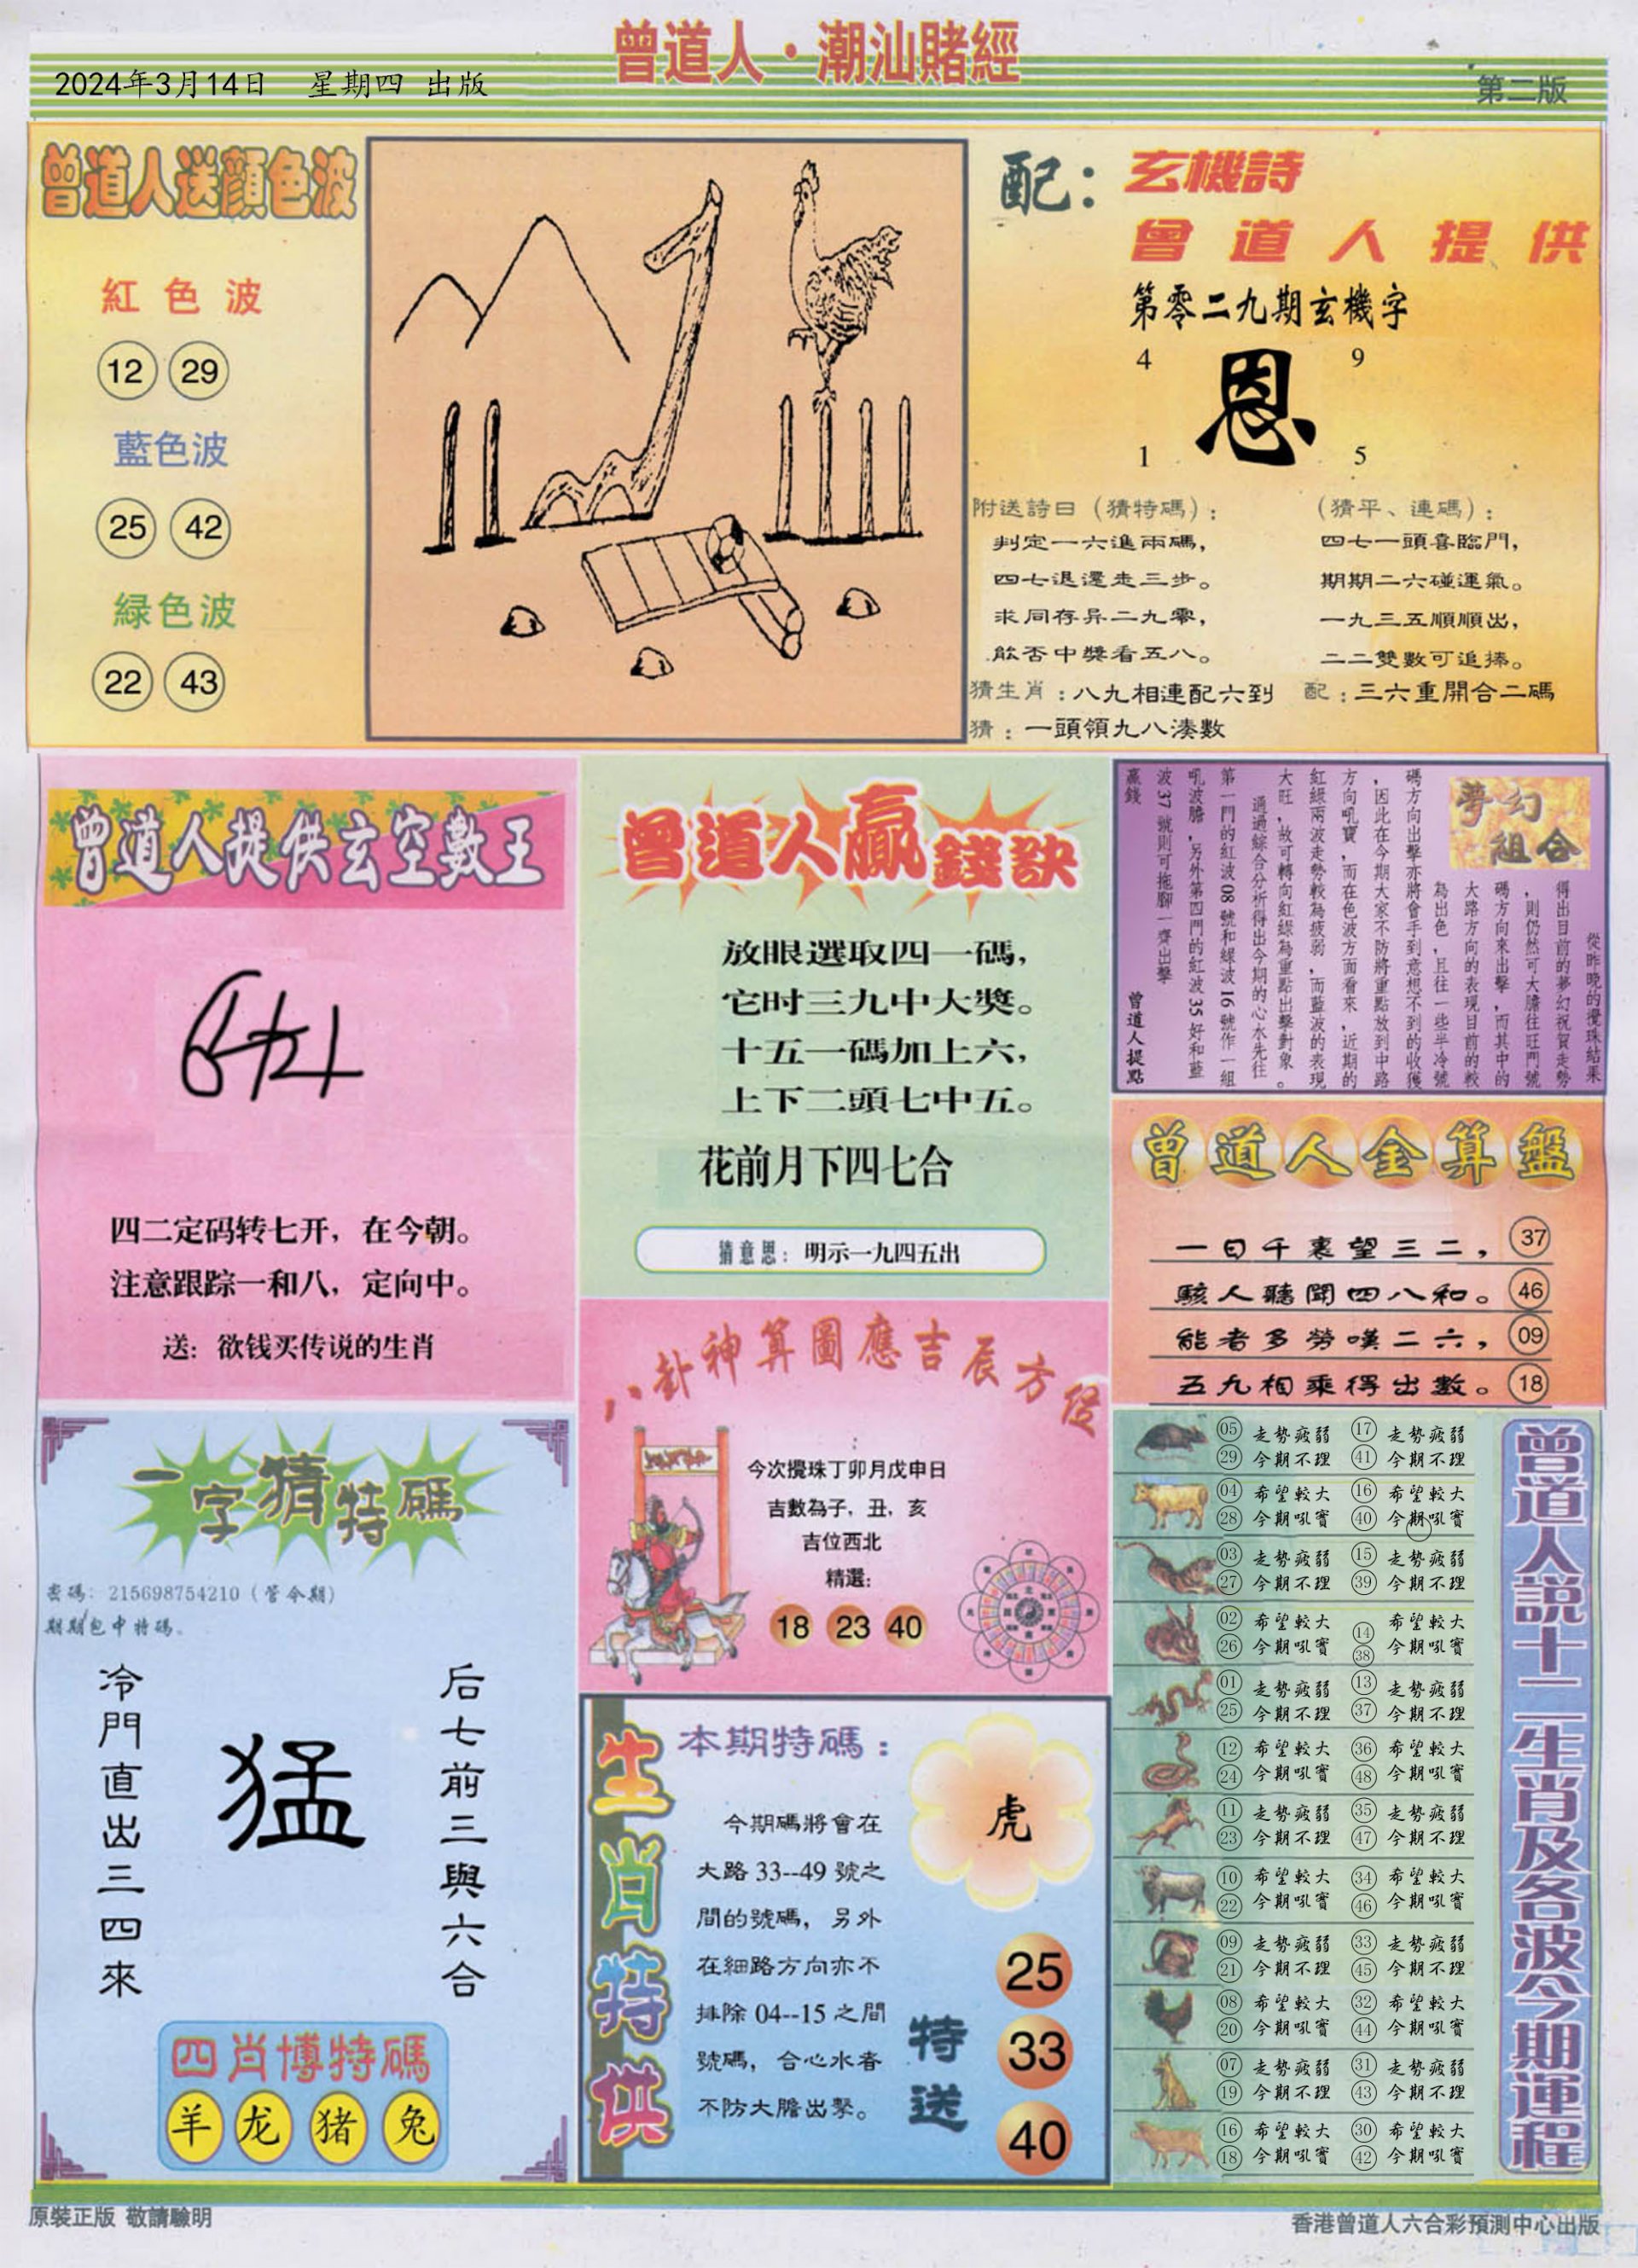 曾道人·潮汕賭經
2024年3月14日 星期四 出版
第二版
曾道人送顏色波
紅色波
12 29
藍色波
25 42
緑色波
22 43
配：玄機詩
曾道人提供
第零二九期玄機字
4 9
恩
1 5
附送詩曰（猜特碼）：
判定一六進兩碼，
四七退還走三步。
求同存异二九零，
能否中獎看五八。
（猜平、連碼）：
四七一頭喜臨門，
期期二六碰運氣。
一九三五順順出，
二二雙數可追捧。
猜生肖：八九相連配六到
配：三六重開合二碼
猜：一頭領九八湊數
曾道人提供玄空數王
四二定码转七开，在今朝。
注意跟踪一和八，定向中。
送：欲钱买传说的生肖
曾道人贏錢訣
放眼選取四一碼，
它时三九中大獎。
十五一碼加上六，
上下二頭七中五。
花前月下四七合
猜意思：明示一九四五出
夢幻組合
從昨晚的攪珠結果
得出目前的夢幻祝賀走勢
，則仍然可大膽往旺門號
碼方向來出擊，而其中的
大路方向的表現目前的較
為出色，且往一些半冷號
碼方向出擊亦將會手到意想不到的收獲
，因此在今期大家不防將重點放到中路
方向吼寶，而在色波方面看來，近期的
紅綠兩波走勢較為疲弱，而藍波的表現
大旺，故可轉向紅綠為重點出擊對象。
通過綜合分析得出今期的心水先往
第一門的紅波08號和綠波16號作一組
吼波膽，另外第四門的紅波35好和藍
波37號則可拖腳一齊出擊
贏錢
曾道人提點
曾道人金算盤
一日千裏望三二， 37
駭人聽聞四八和。 46
能者多勞嘆二六， 09
五九相乘得出數。 18
八卦神算圖應吉辰方位
今次攪珠丁卯月戊申日
吉數為子，丑，亥
吉位西北
精選：
18 23 40
一字猜特碼
密碼：215698754210（管今期）
期期包中特碼。
冷門直出三四來
猛
后七前三與六合
四肖博特碼
羊 龙 猪 兔
生肖特供
本期特碼：
虎
今期碼將會在
大路33--49號之
間的號碼，另外
在細路方向亦不
排除04--15之間
號碼，合心水者
不防大膽出擊。
特送
25
33
40
曾道人說十二生肖及各波今期運程
05 走勢疲弱 17 走勢疲弱
29 今期不理 41 今期不理
04 希望較大 16 希望較大
28 今期吼寶 40 今期吼寶
03 走勢疲弱 15 走勢疲弱
27 今期不理 39 今期不理
02 希望較大 14 希望較大
26 今期吼寶 38 今期吼寶
01 走勢疲弱 13 走勢疲弱
25 今期不理 37 今期不理
12 希望較大 36 希望較大
24 今期吼寶 48 今期吼寶
11 走勢疲弱 35 走勢疲弱
23 今期不理 47 今期不理
10 希望較大 34 希望較大
22 今期吼寶 46 今期吼寶
09 走勢疲弱 33 走勢疲弱
21 今期不理 45 今期不理
08 希望較大 32 希望較大
20 今期吼寶 44 今期吼寶
07 走勢疲弱 31 走勢疲弱
19 今期不理 43 今期不理
16 希望較大 30 希望較大
18 今期吼寶 42 今期吼寶
原裝正版 敬請驗明
香港曾道人六合彩預測中心出版